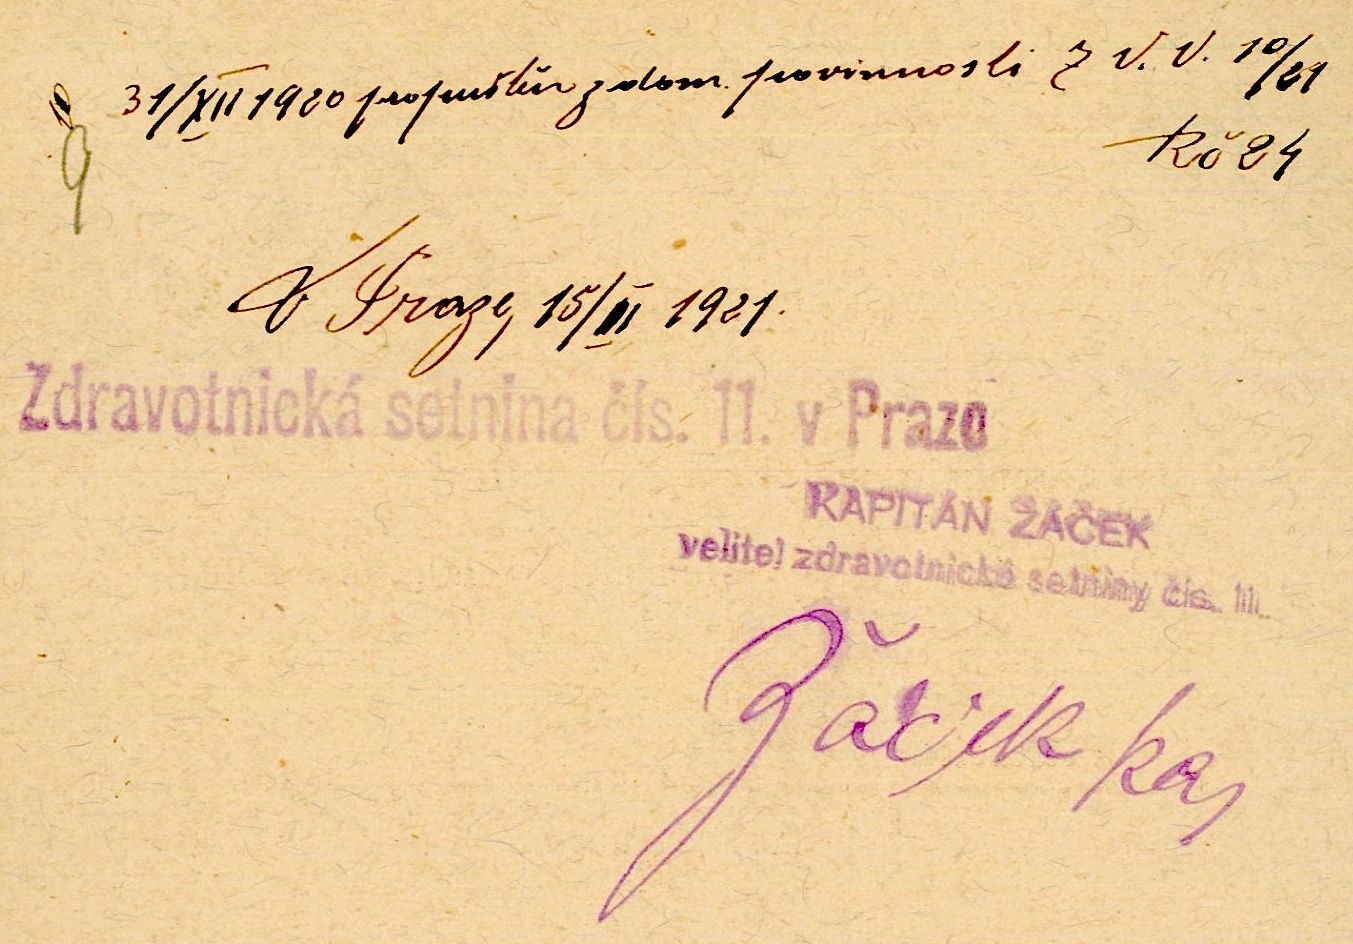 31/XII 1920 propuštěn z dom. povinnosti Z V. V. 10/21
Kč 24
9
V Praze, 15/III 1921.
Zdravotnická setnina čís. 11. v Praze
KAPITÁN ŽÁČEK
velitel zdravotnické setniny čís. 11.
Žáček kap